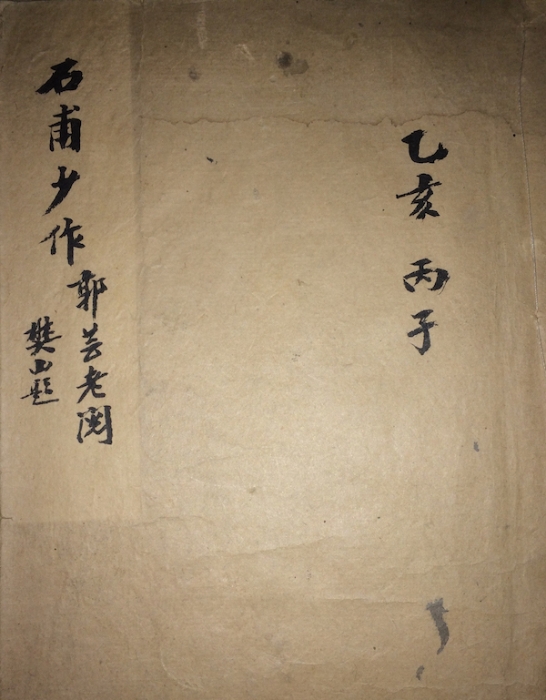 乙亥 丙子
石甫少作
郭芸老閱
樊山題